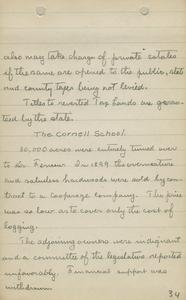 also may take charge of private estates
if the same are opened to the public, state
and county taxes being not levied.
Titles to reverted Tax lands are guaran-
teed by the state.
The Cornell School.
30,000 acres were entirely turned over
to Dr. Fernow. In 1899 the overmature
and valueless hardwoods were sold by con-
tract to a cooperage company. The price
was so low as to cover only the cost of
logging.
The adjoining owners were indignant
and a committee of the legislature reported
unfavorably. Financial support was
withdrawn.
34